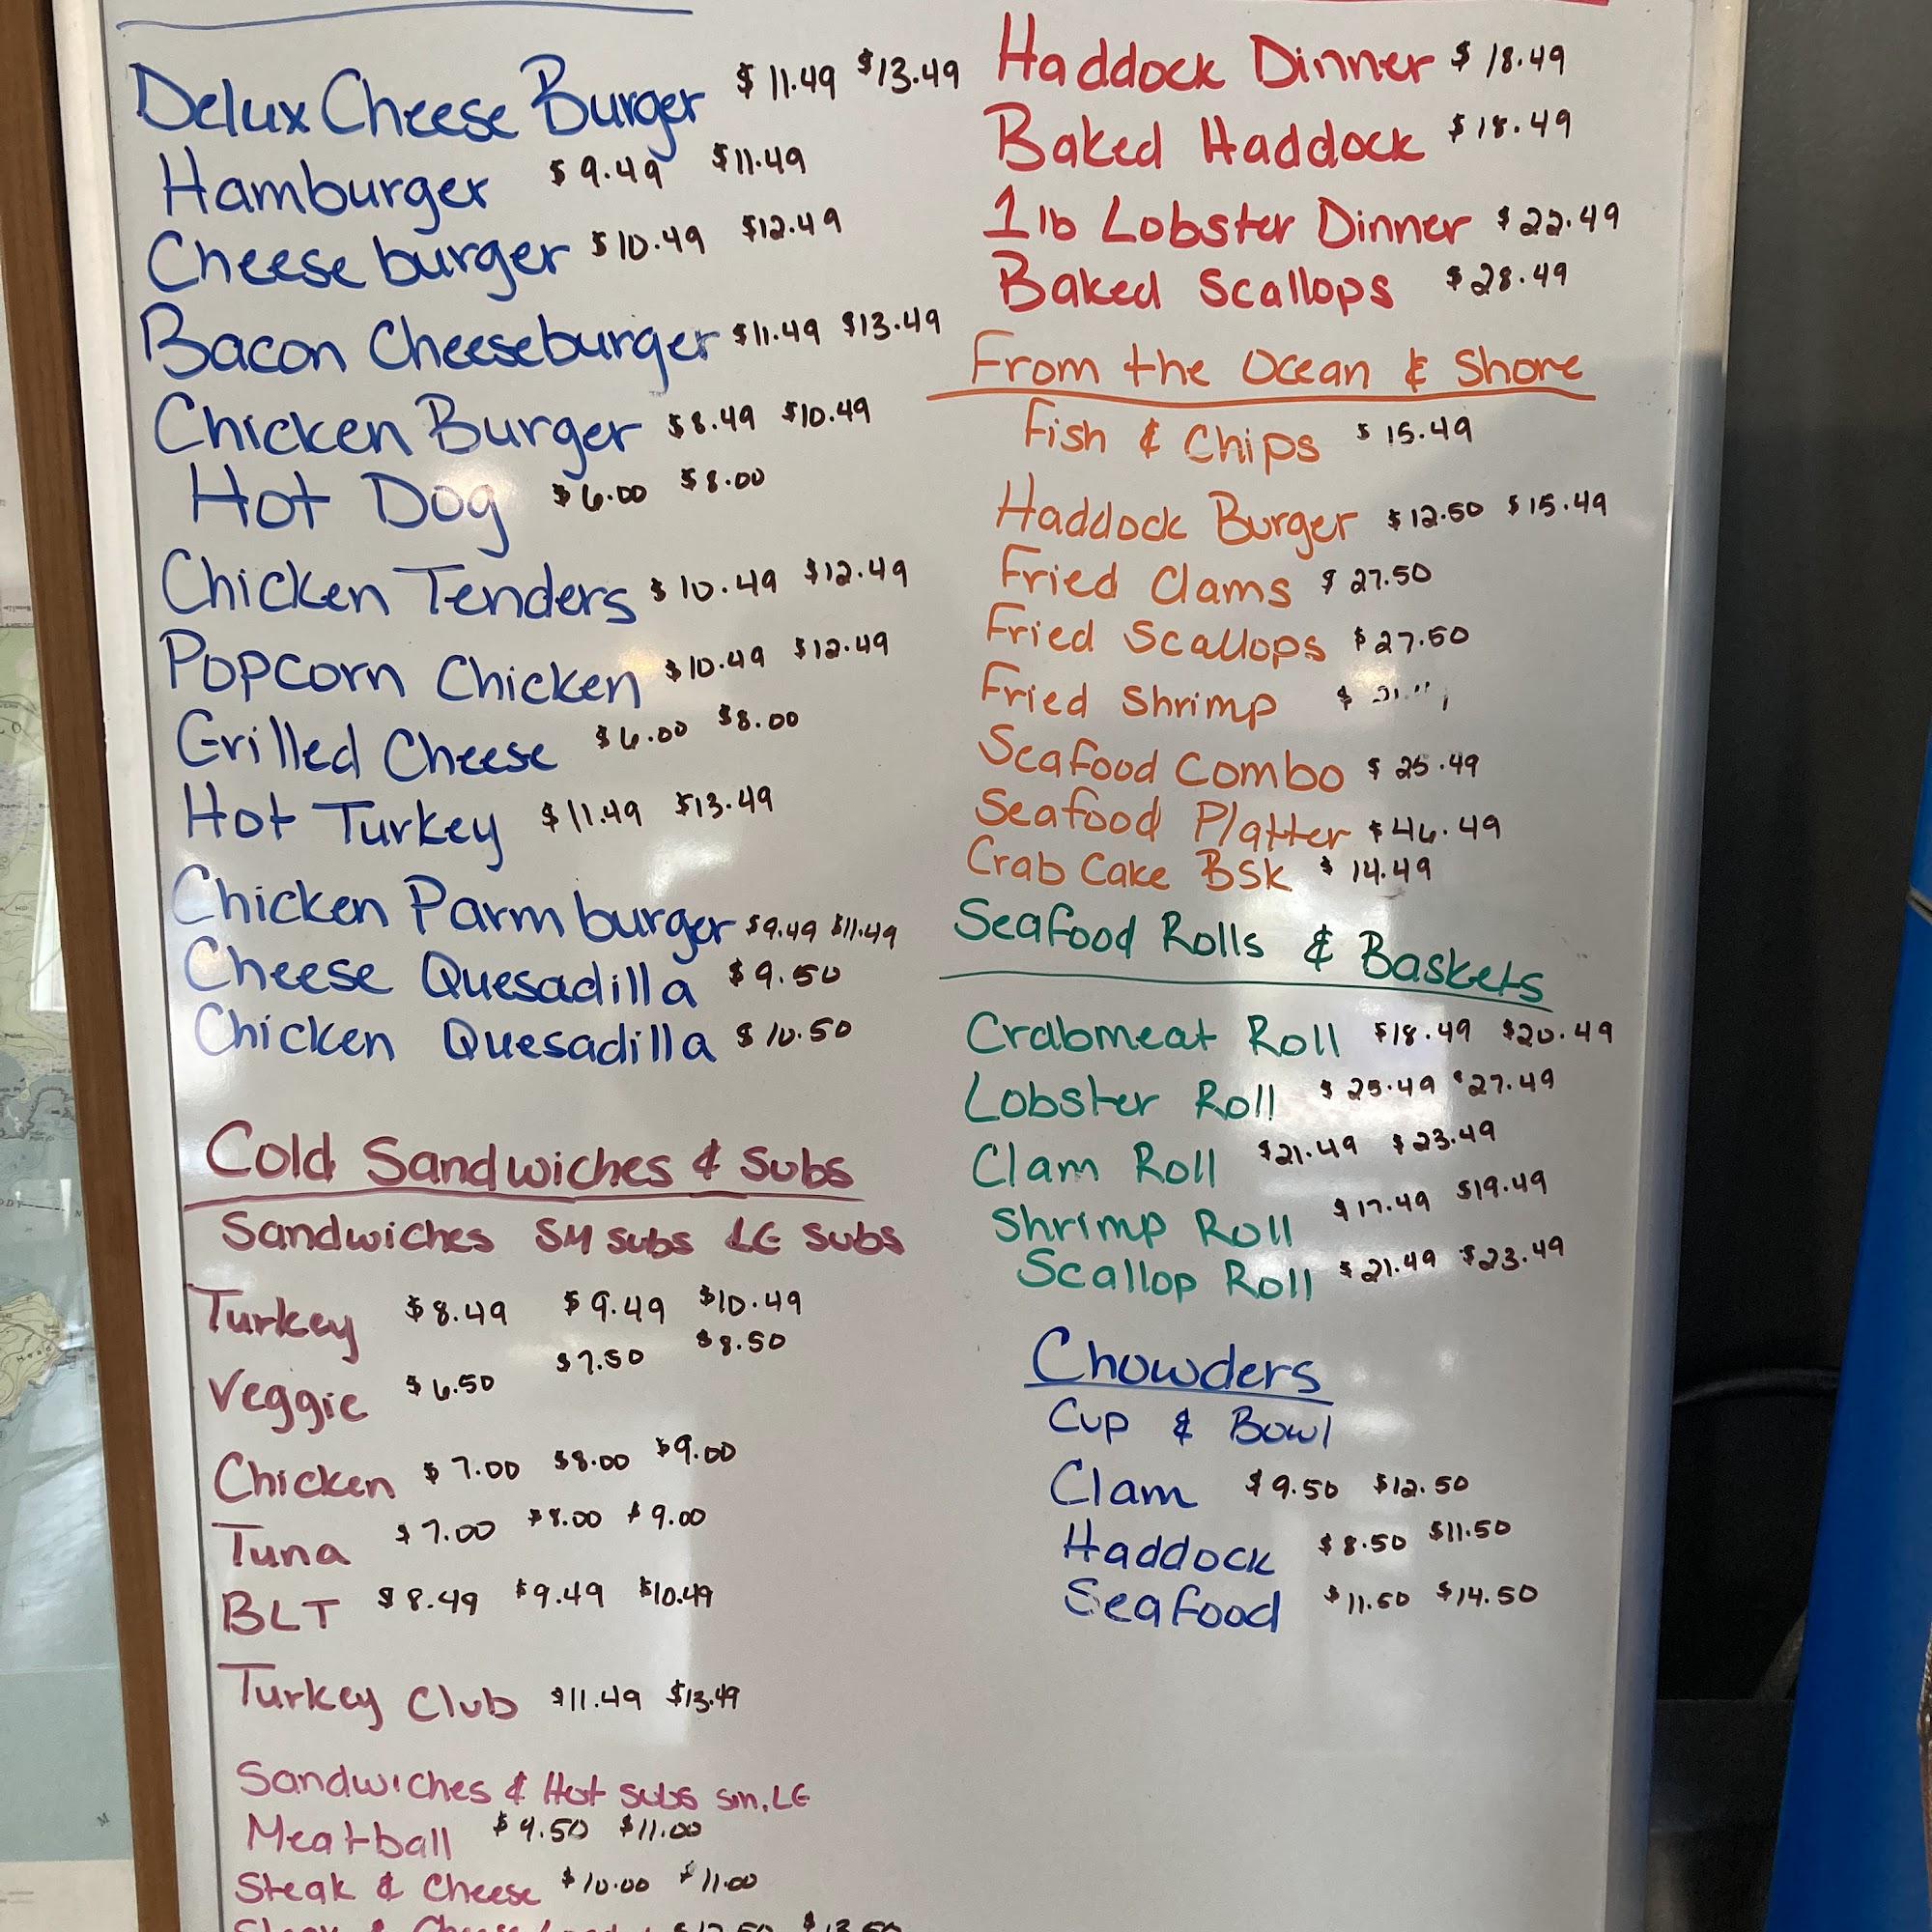 Delux Cheese Burger $11.49 $13.49
Hamburger $9.49 $11.49
Cheese burger $10.49 $12.49
Bacon Cheeseburger $11.49 $13.49
Chicken Burger $8.49 $10.49
Hot Dog $6.00 $8.00
Chicken Tenders $10.49 $12.49
Popcorn Chicken $10.49 $12.49
Grilled Cheese $6.00 $8.00
Hot Turkey $11.49 $13.49
Chicken Parm burger $9.49 $11.49
Cheese Quesadilla $9.50
Chicken Quesadilla $10.50
Cold Sandwiches & Subs
Sandwiches SM subs LG subs
Turkey $8.49 $9.49 $10.49
Veggie $6.50 $7.50 $8.50
Chicken $7.00 $8.00 $9.00
Tuna $7.00 $8.00 $9.00
BLT $8.49 $9.49 $10.49
Turkey Club $11.49 $13.49
Sandwiches & Hot subs sm, LG
Meatball $9.50 $11.00
Steak & Cheese $10.00 $11.00
Haddock Dinner $18.49
Baked Haddock $18.49
1 lb Lobster Dinner $22.49
Baked Scallops $28.49
From the Ocean & Shore
Fish & Chips $15.49
Haddock Burger $12.50 $15.49
Fried Clams $27.50
Fried Scallops $27.50
Fried Shrimp $
Seafood Combo $25.49
Seafood Platter $46.49
Crab Cake BSK $14.49
Seafood Rolls & Baskets
Crabmeat Roll $18.49 $20.49
Lobster Roll $25.49 $27.49
Clam Roll $21.49 $23.49
Shrimp Roll $17.49 $19.49
Scallop Roll $21.49 $23.49
Chowders
Cup & Bowl
Clam $9.50 $12.50
Haddock $8.50 $11.50
Seafood $11.50 $14.50